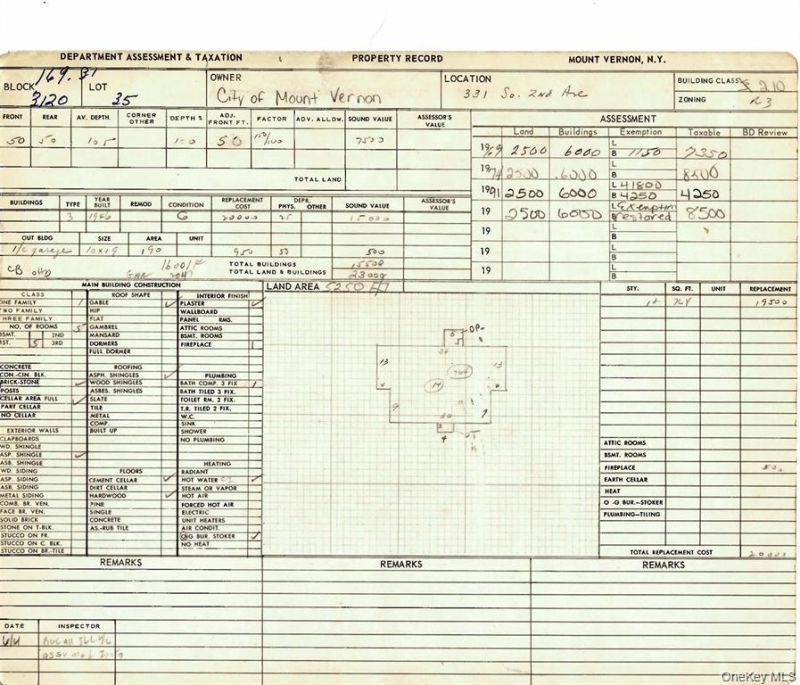 DEPARTMENT ASSESSMENT & TAXATION PROPERTY RECORD MOUNT VERNON, N.Y.
BLOCK 169.31 3120 LOT 35
OWNER City of Mount Vernon
LOCATION 331 So. 2nd Ave
BUILDING CLASS 210
ZONING R3
FRONT REAR AV. DEPTH CORNER OTHER DEPTH % ADJ. FRONT FT. FACTOR ADV. ALLOW. SOUND VALUE ASSESSOR'S VALUE
50 50 105 100 50 150/100 7500
TOTAL LAND
ASSESSMENT
Land Buildings Exemption Taxable BD Review
1969 2500 6000 L B 1150 7350
1974 2500 6000 L B 8500
1991 2500 6000 L 41800 B 4250 4250
19 2500 6000 L Exemption B restored 8500
19 L B
19 L B
19 L B
BUILDINGS TYPE YEAR BUILT REMOD CONDITION REPLACEMENT COST DEPR. PHYS. OTHER SOUND VALUE ASSESSOR'S VALUE
3 1926 G 20000 25 15000
OUT BLDG SIZE AREA UNIT
1/c garage 10x19 190 950 50 500
CB
TOTAL BUILDINGS 15500
TOTAL LAND & BUILDINGS 23000
MAIN BUILDING CONSTRUCTION
LAND AREA 5250
CLASS
ONE FAMILY 1
TWO FAMILY
THREE FAMILY
NO. OF ROOMS 5
BSMT. 2ND
1ST. 5 3RD
CONCRETE
CON.-CIN. BLK.
BRICK-STONE
POSTS
CELLAR AREA FULL
PART CELLAR
NO CELLAR
EXTERIOR WALLS
CLAPBOARDS
WD. SHINGLE
ASP. SHINGLE
ASB. SHINGLE
WD. SIDING
ASP. SIDING
ASB. SIDING
METAL SIDING
COMB. BR. VEN.
FACE BR. VEN.
SOLID BRICK
STONE ON T-BLK.
STUCCO ON FR.
STUCCO ON C. BLK.
STUCCO ON BR.-TILE
ROOF SHAPE
GABLE
HIP
FLAT
GAMBREL
MANSARD
DORMERS
FULL DORMER
ROOFING
ASPH. SHINGLES
WOOD SHINGLES
ASBES. SHINGLES
SLATE
TILE
METAL
COMP.
BUILT UP
FLOORS
CEMENT CELLAR
DIRT CELLAR
HARDWOOD
PINE
SINGLE
CONCRETE
AS.-RUB TILE
INTERIOR FINISH
PLASTER
WALLBOARD
PANEL RMS.
ATTIC ROOMS
BSMT. ROOMS
FIREPLACE 1
PLUMBING
BATH COMP. 3 FIX. 1
BATH TILED 3 FIX.
TOILET RM. 2 FIX.
T.R. TILED 2 FIX.
W.C.
SINK
SHOWER
NO PLUMBING
HEATING
RADIANT
HOT WATER
STEAM OR VAPOR
HOT AIR
FORCED HOT AIR
ELECTRIC
UNIT HEATERS
AIR CONDIT.
O-G BUR. STOKER
NO HEAT
OP
13
13
9
4
STY. SQ. FT. UNIT REPLACEMENT
19500
ATTIC ROOMS
BSMT. ROOMS
FIREPLACE 500
EARTH CELLAR
HEAT
O -G BUR.—STOKER
PLUMBING—TILING
TOTAL REPLACEMENT COST 20000
REMARKS REMARKS REMARKS
DATE INSPECTOR
OneKey MLS